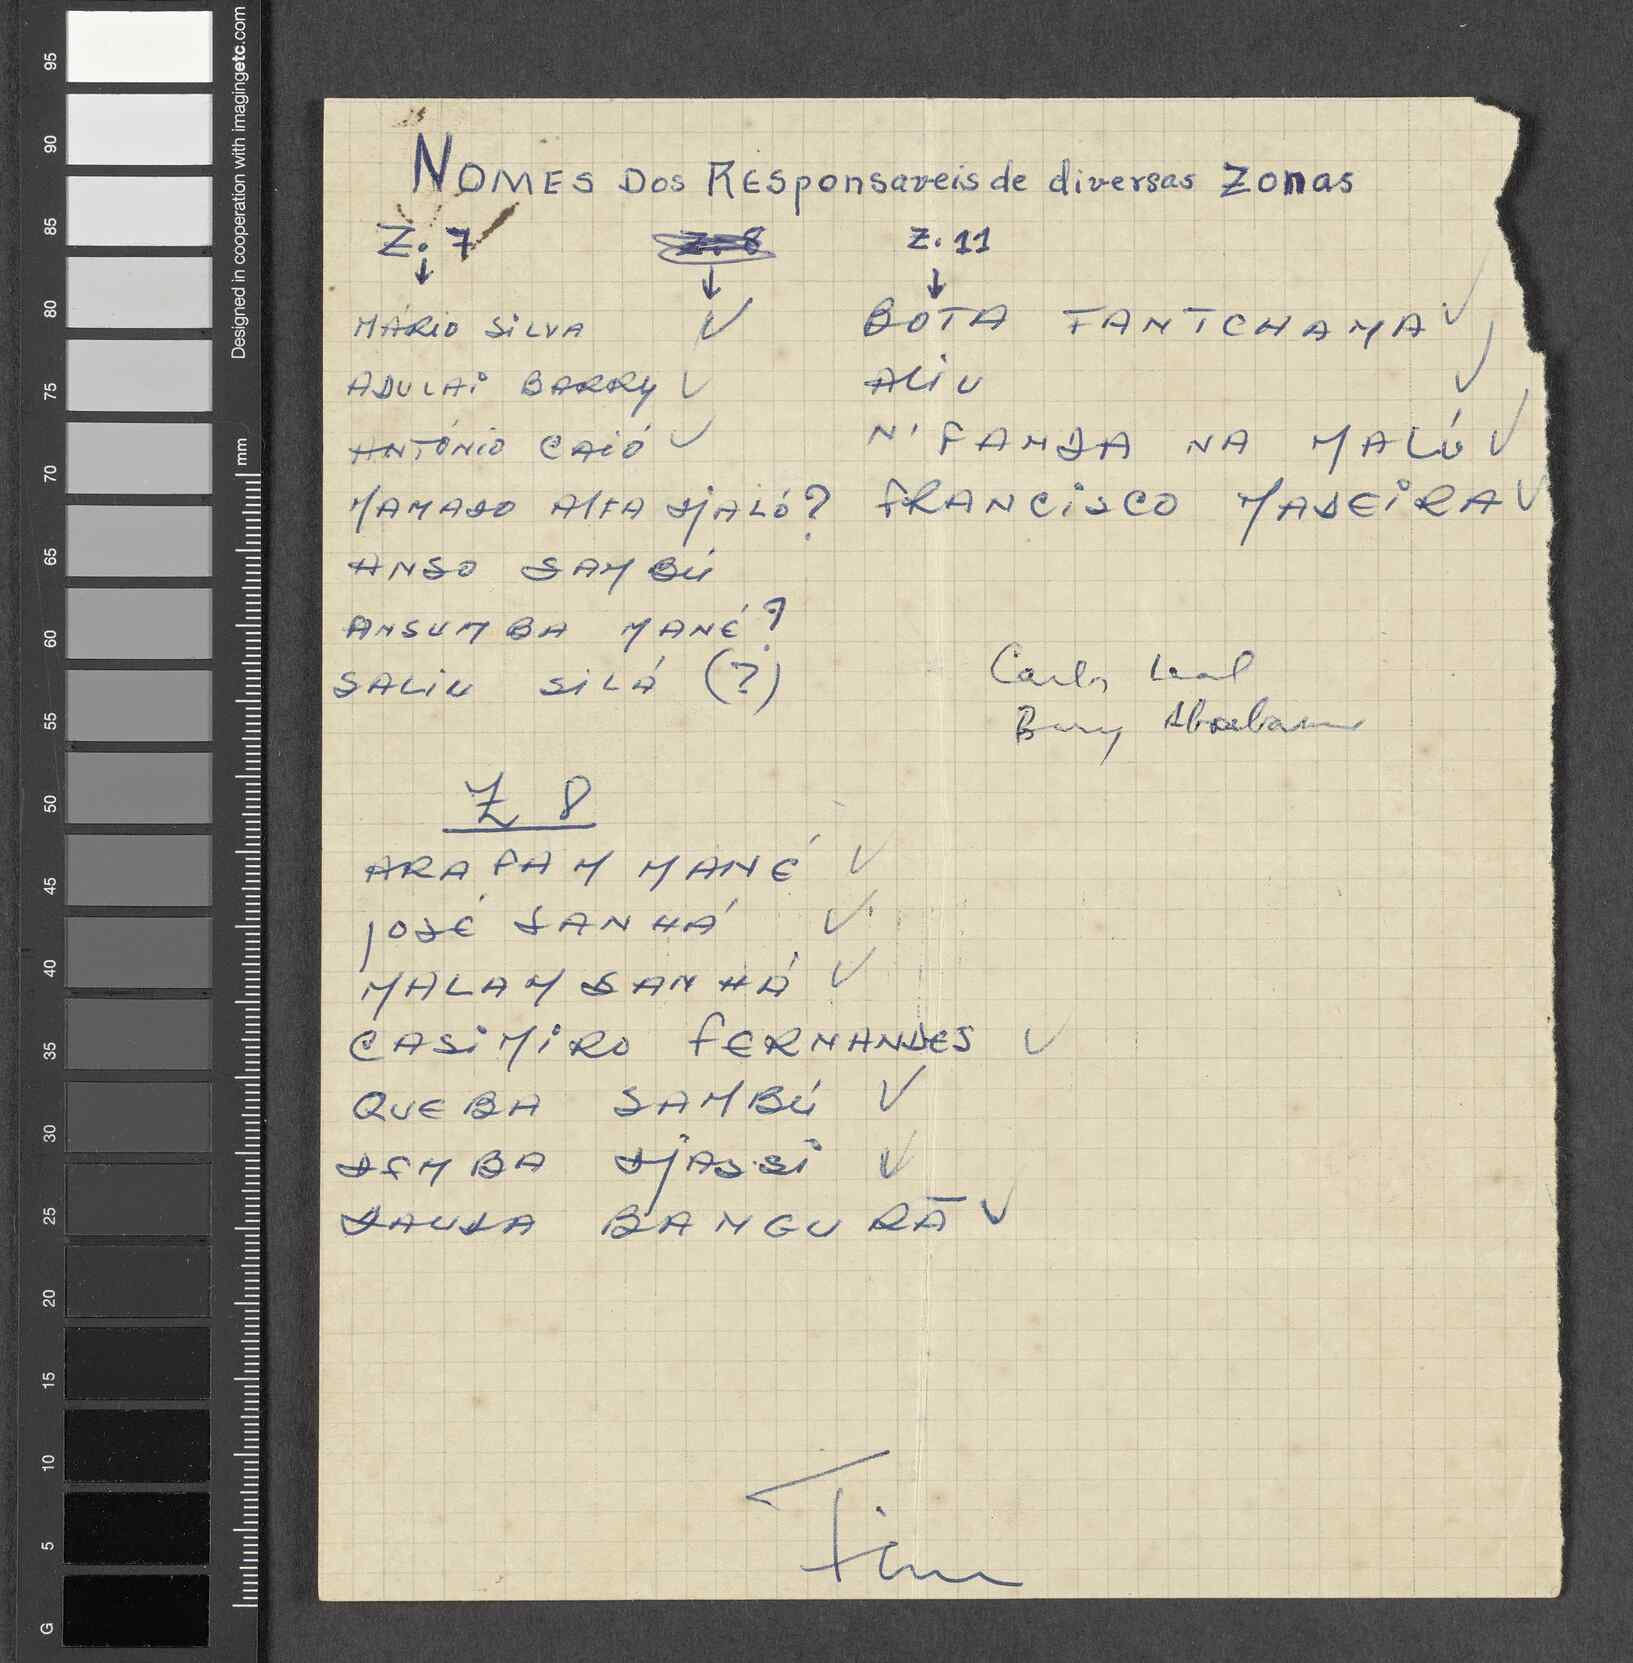 NOMES DOS RESponsaveis de diversas Zonas
Z. 7
Z. 8
Z. 11
MÁRIO SILVA
ADULAI BARRY
ANTÓNIO CAIÓ
MAMADO ALFA DJALÓ?
ANSO SAMBÚ
ANSUMBA MANÉ?
SALIU SILÁ (?)
BOTA FANTCHAMA
ALIU
N'FAMDA NA MALÚ
FRANCISCO MADEIRA
Carlos Leal
Z 8
ARAFAM MANÉ
JOSÉ SANHÁ
MALAM SANHÁ
CASIMIRO FERNANDES
QUEBA SAMBÚ
DEMBA DJASSI
DAUDA BANGURÃ
Fim
95
90
85
80
75
70
65
60
55
50
45
40
35
30
25
20
15
10
5
G
Designed in cooperation with imagingetc.com
mm